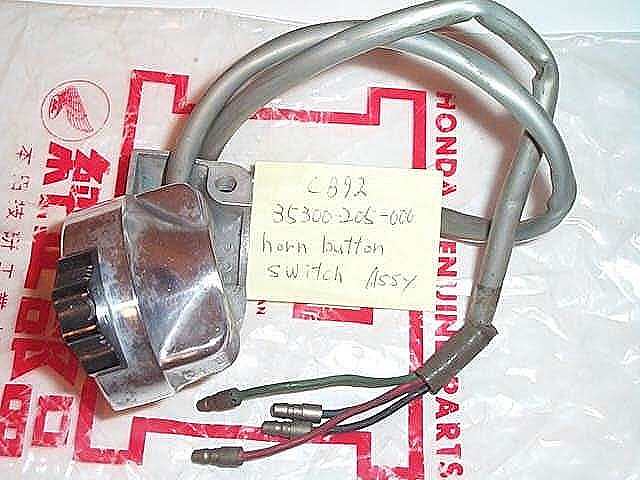 CB92
35300-205-000
horn button
switch Assy
HONDA
PARTS
純
部品
本田技研工業